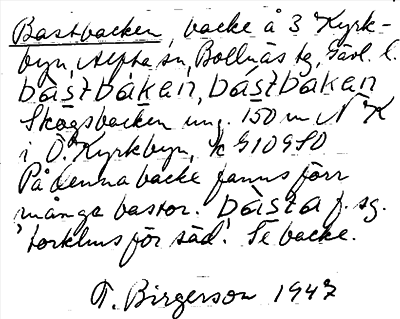 Bastbacken, backe å 3 Kyrk-
byn, Alfta sn, Bollnäs tg, Gävl. l.
bàstbàkan, bástbàkan
Skogsbacken ung. 150 m N K
i Ö. Kyrkbyn, k G109SO
På denna backe fanns förr
många bastor. bàsta f. sg.
'torkhus för säd'. Se backe.
T. Birgerson 1947